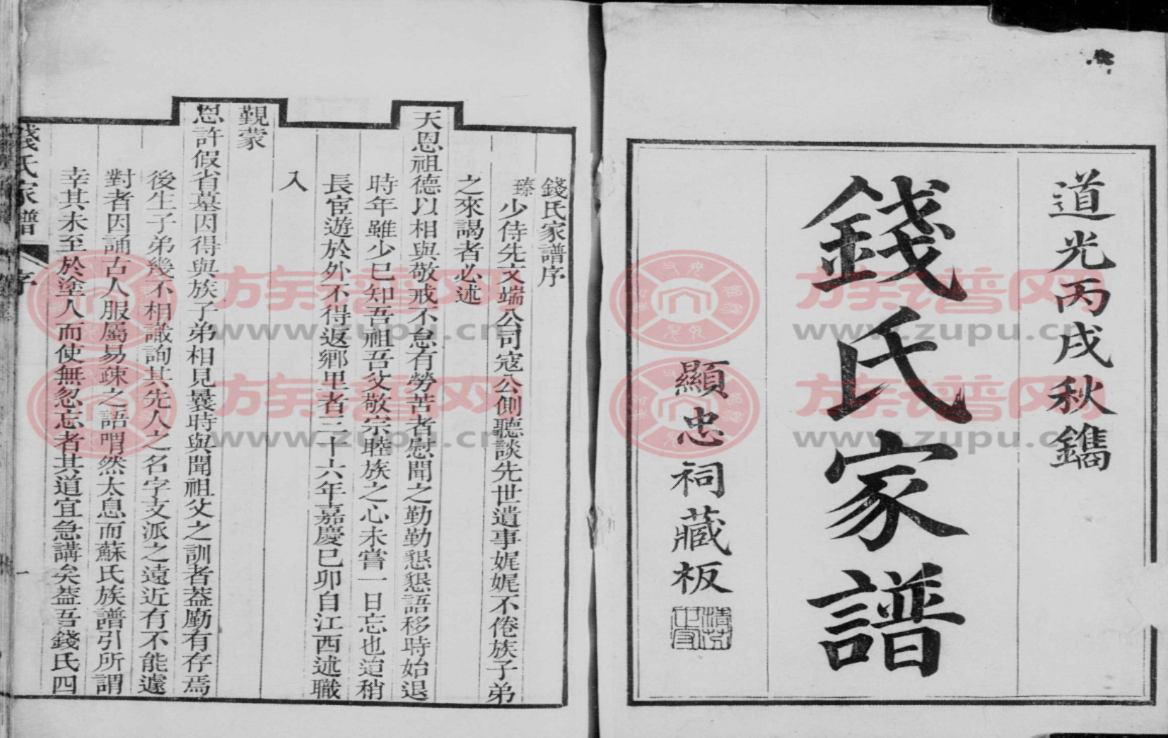 道光丙戌秋鐫
錢氏家譜
顯忠祠藏板
錢氏家譜序
臻少侍先文端公司寇公側聽談先世遺事娓娓不倦族子弟
之來謁者必述
天恩祖德以相與敬戒不怠有勞苦者慰問之勤勤懇懇語移時始退
時年雖少已知吾祖吾父敬宗睦族之心未嘗一日忘也迨稍
長宦遊於外不得返鄉里者三十六年嘉慶已卯自江西述職
入
覲蒙
恩許假省墓因得與族子弟相見曩時與聞祖父之訓者葢尠有存焉
後生子弟幾不相識詢其先人之名字支派之遠近有不能遽
對者因誦古人服屬易疎之語喟然太息而蘇氏族譜引所謂
幸其未至於塗人而使無忽忘者其道宜急講矣葢吾錢氏四
錢氏家譜
序
一
族譜网
www.zupu.cn
族譜网
www.zupu.cn
族譜网
www.zupu.cn
族譜网
www.zupu.cn